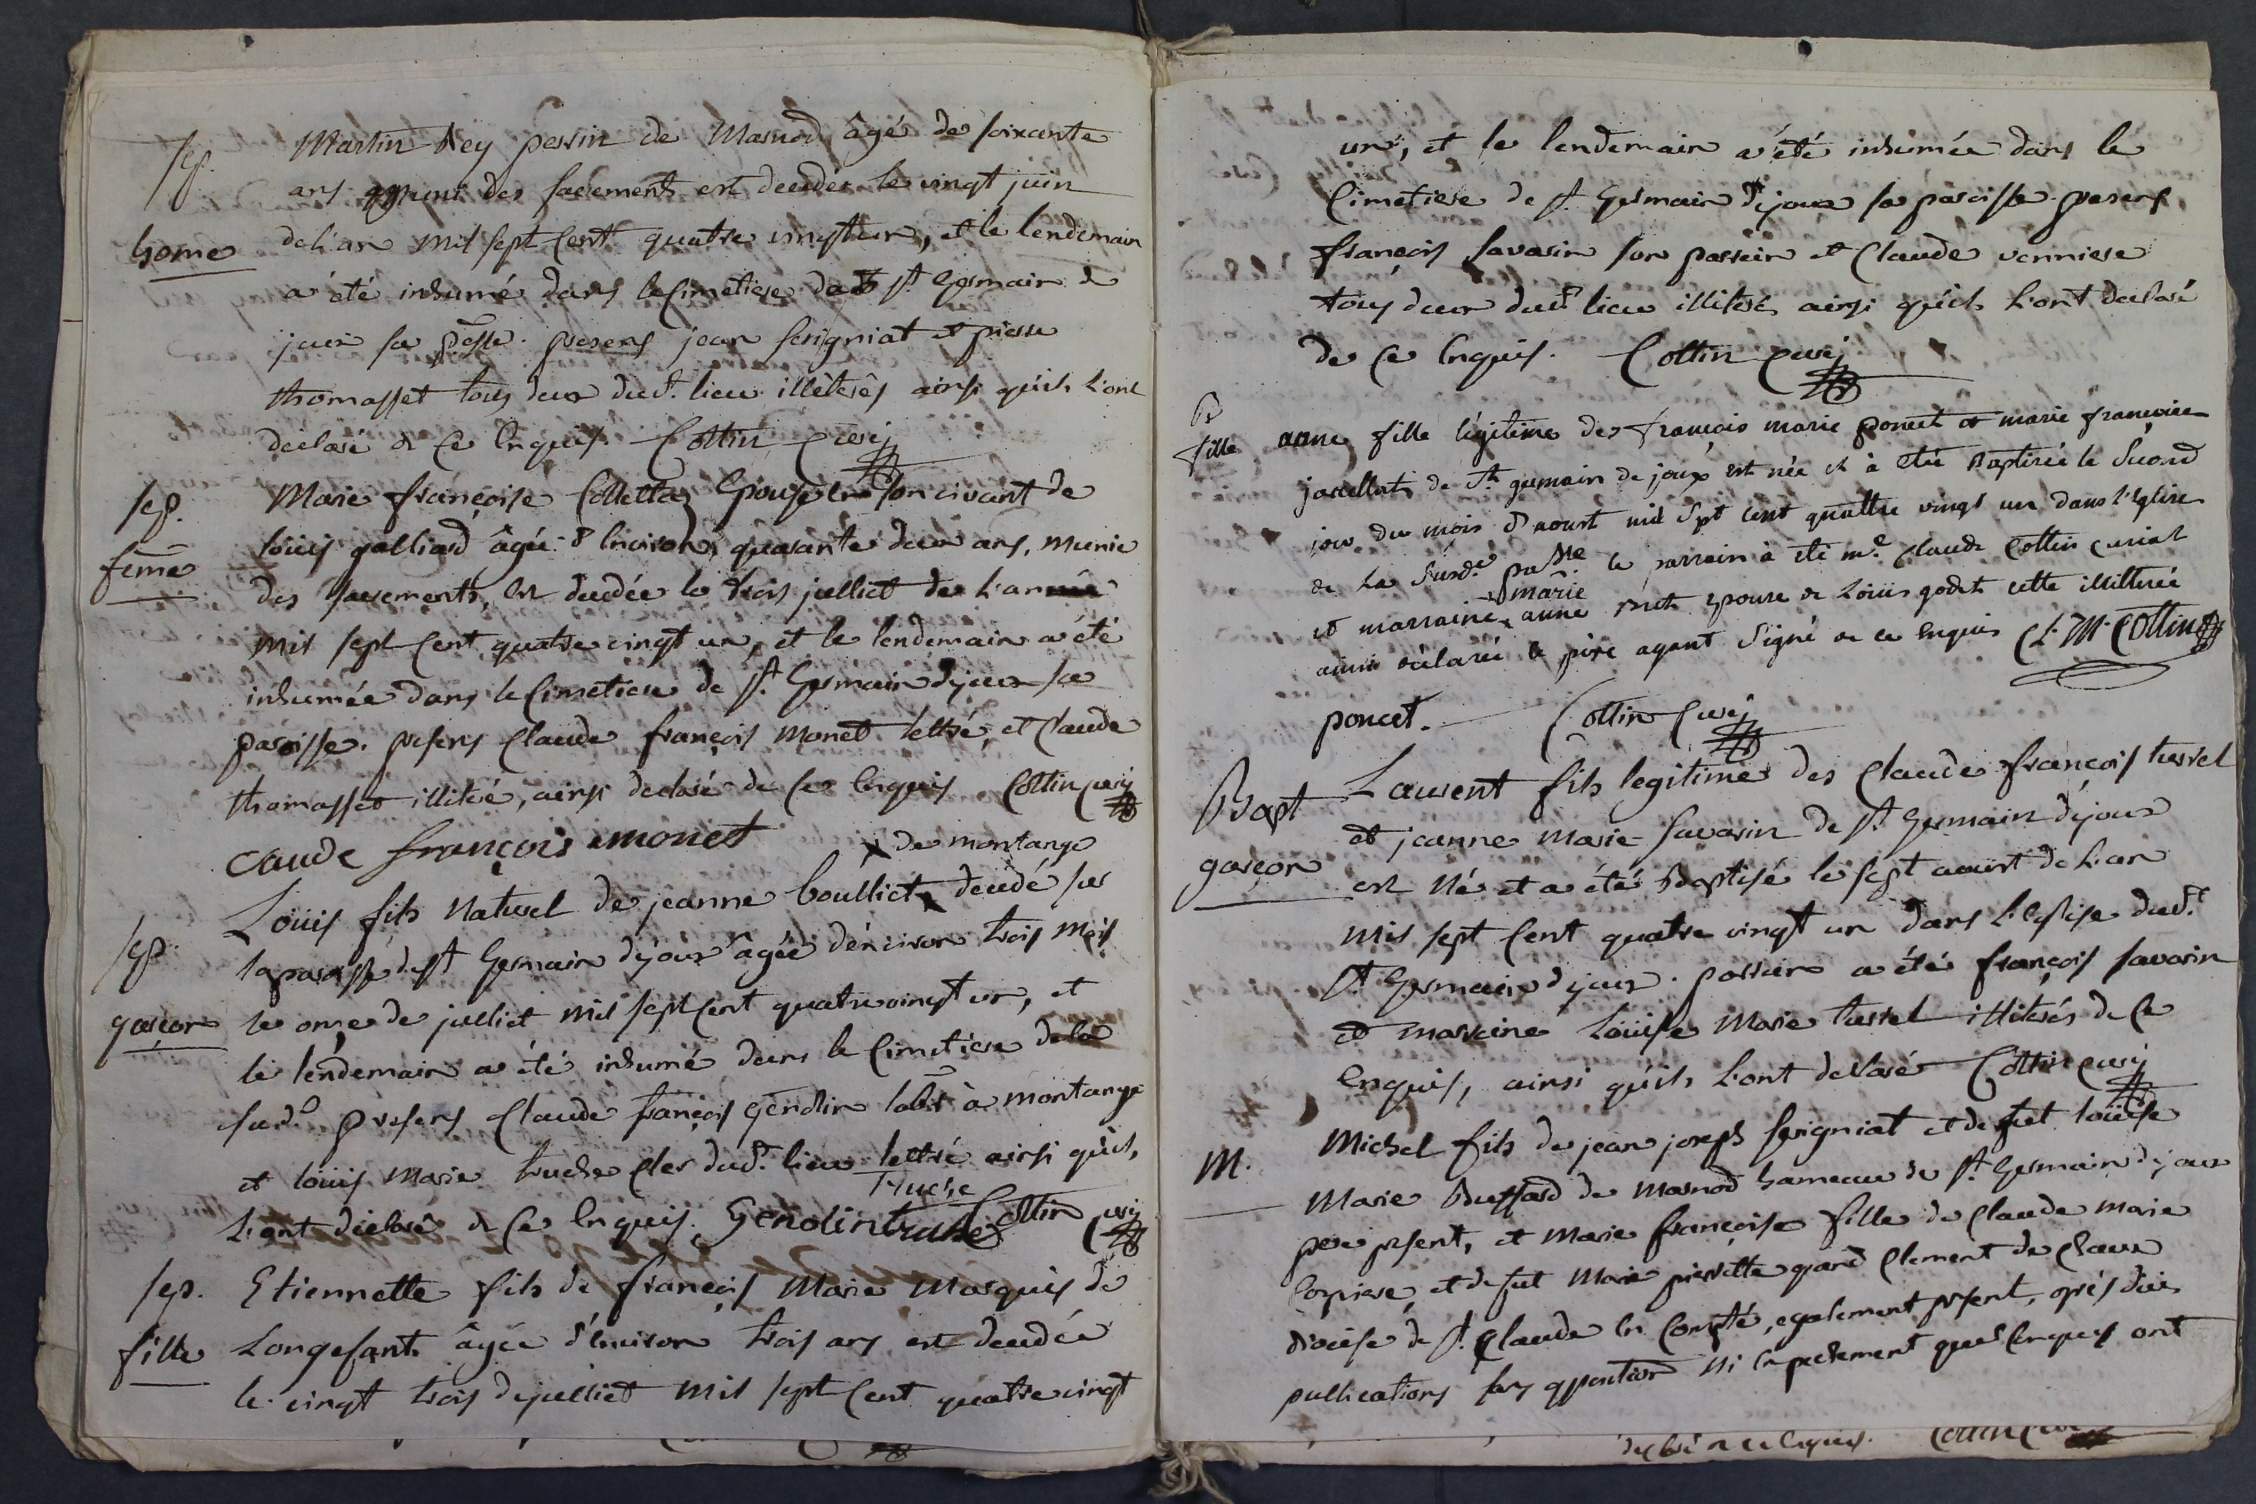 sep.
home
Martin Rey perrin de Marnod âgé de soixante
ans muni des sacements est decedé le vingt juin
de l'an mil sept cent quatre vingt un, et le lendemain
a été inhumé dans le cimetiere de St Germain de
joux sa psse. presens jean serigniat et pierre
thomasset tous deux dud. lieu illétérés ainsi qu'ils l'ont
déclaré de ce enquis. Cottin curé
sep.
feme
Marie françoise Colletta Epouse en son vivant de
loüis galliard âgée d'environ quarante deux ans, munie
des sacements, est decédée le trois julliet de l'année
mil sept cent quatre vingt un, et le lendemain a été
inhumée dans le cimetiere de St. Germain dejoux sa
paroisse. presens Claude françois Monet lettré, et Claude
thomasset illitéré, ainsi declaré de ce enquis Cottin curé
caude françois monet
de montange
sep.
garçon
Loüis fils naturel de jeanne boulliet decédé sur
la paroisse de St Germain déjoux âgée d'environ trois mois
le onze de julliet mil sept cent quatre vingt un, et
le lendemain a été inhumé dans le cimetiere de la
sud. presens Claude françois Gendin labr à montange
et loüis Marie truche cler dud. lieu lettré ainsi qu'ils,
truche
l'ont déclaré de ce enquis. Gendin truche Cottin curé
sep.
fille
Etiennette fils de françois Marie Marquis de
Longefant âgée d'environ trois ans est decedée
le vingt trois de julliet mil sept cent quatre vingt
un, et le lendemain a été inhumée dans le
cimetiere de St. Germain d'joux sa paroisse. presens
françois savarin son parrain et Claude verniere
tous deux dud. lieu illiterés ainsi qu'ils l'ont declaré
de ce enquis. Cottin curé
B
fille
anne fille légitime des françois marie poncet et marie françoise
jacellerts de St. germain de joux est née et à été Baptisée le Second
jour du mois d'aoust mil Sept cent quattre vingt un dans l'Eglise
de La Susde. pasSe le parrain à été me. claude Cottin curial
marie
et marraine anne epouse de Loüis godet cette illitterée
ainsi déclarée le père ayant Signé de ce enquis C. M. Cottin
poncet. Cottin curé
Bapt
garçon
Laurent fils legitime des Claude françois turrel
et jeanne Marie savarin de St. Germain déjoux
est né et a été Baptisé le sept aoust de l'an
mil sept cent quatre vingt un dans l'Eglise dud.
St Germain d'joux. parrain a été françois savarin
et marraine Loüise Marie turrel illiterés de ce
enquis, ainsi qu'ils l'ont declaré Cottin curé
M.
Michel fils de jean joseph serigniat et defut Loüise
Marie Buffard de Marnod hameau de St. Germain déjoux
pere present, et Marie françoise fille de Claude Marie
et defut Marie pierrette grand Clement de
diocése de St. Claude en Comté, egalement present, après
publications sans opposition ni enpechement quel enquis ont
declaré de ce enquis. Cottin curé